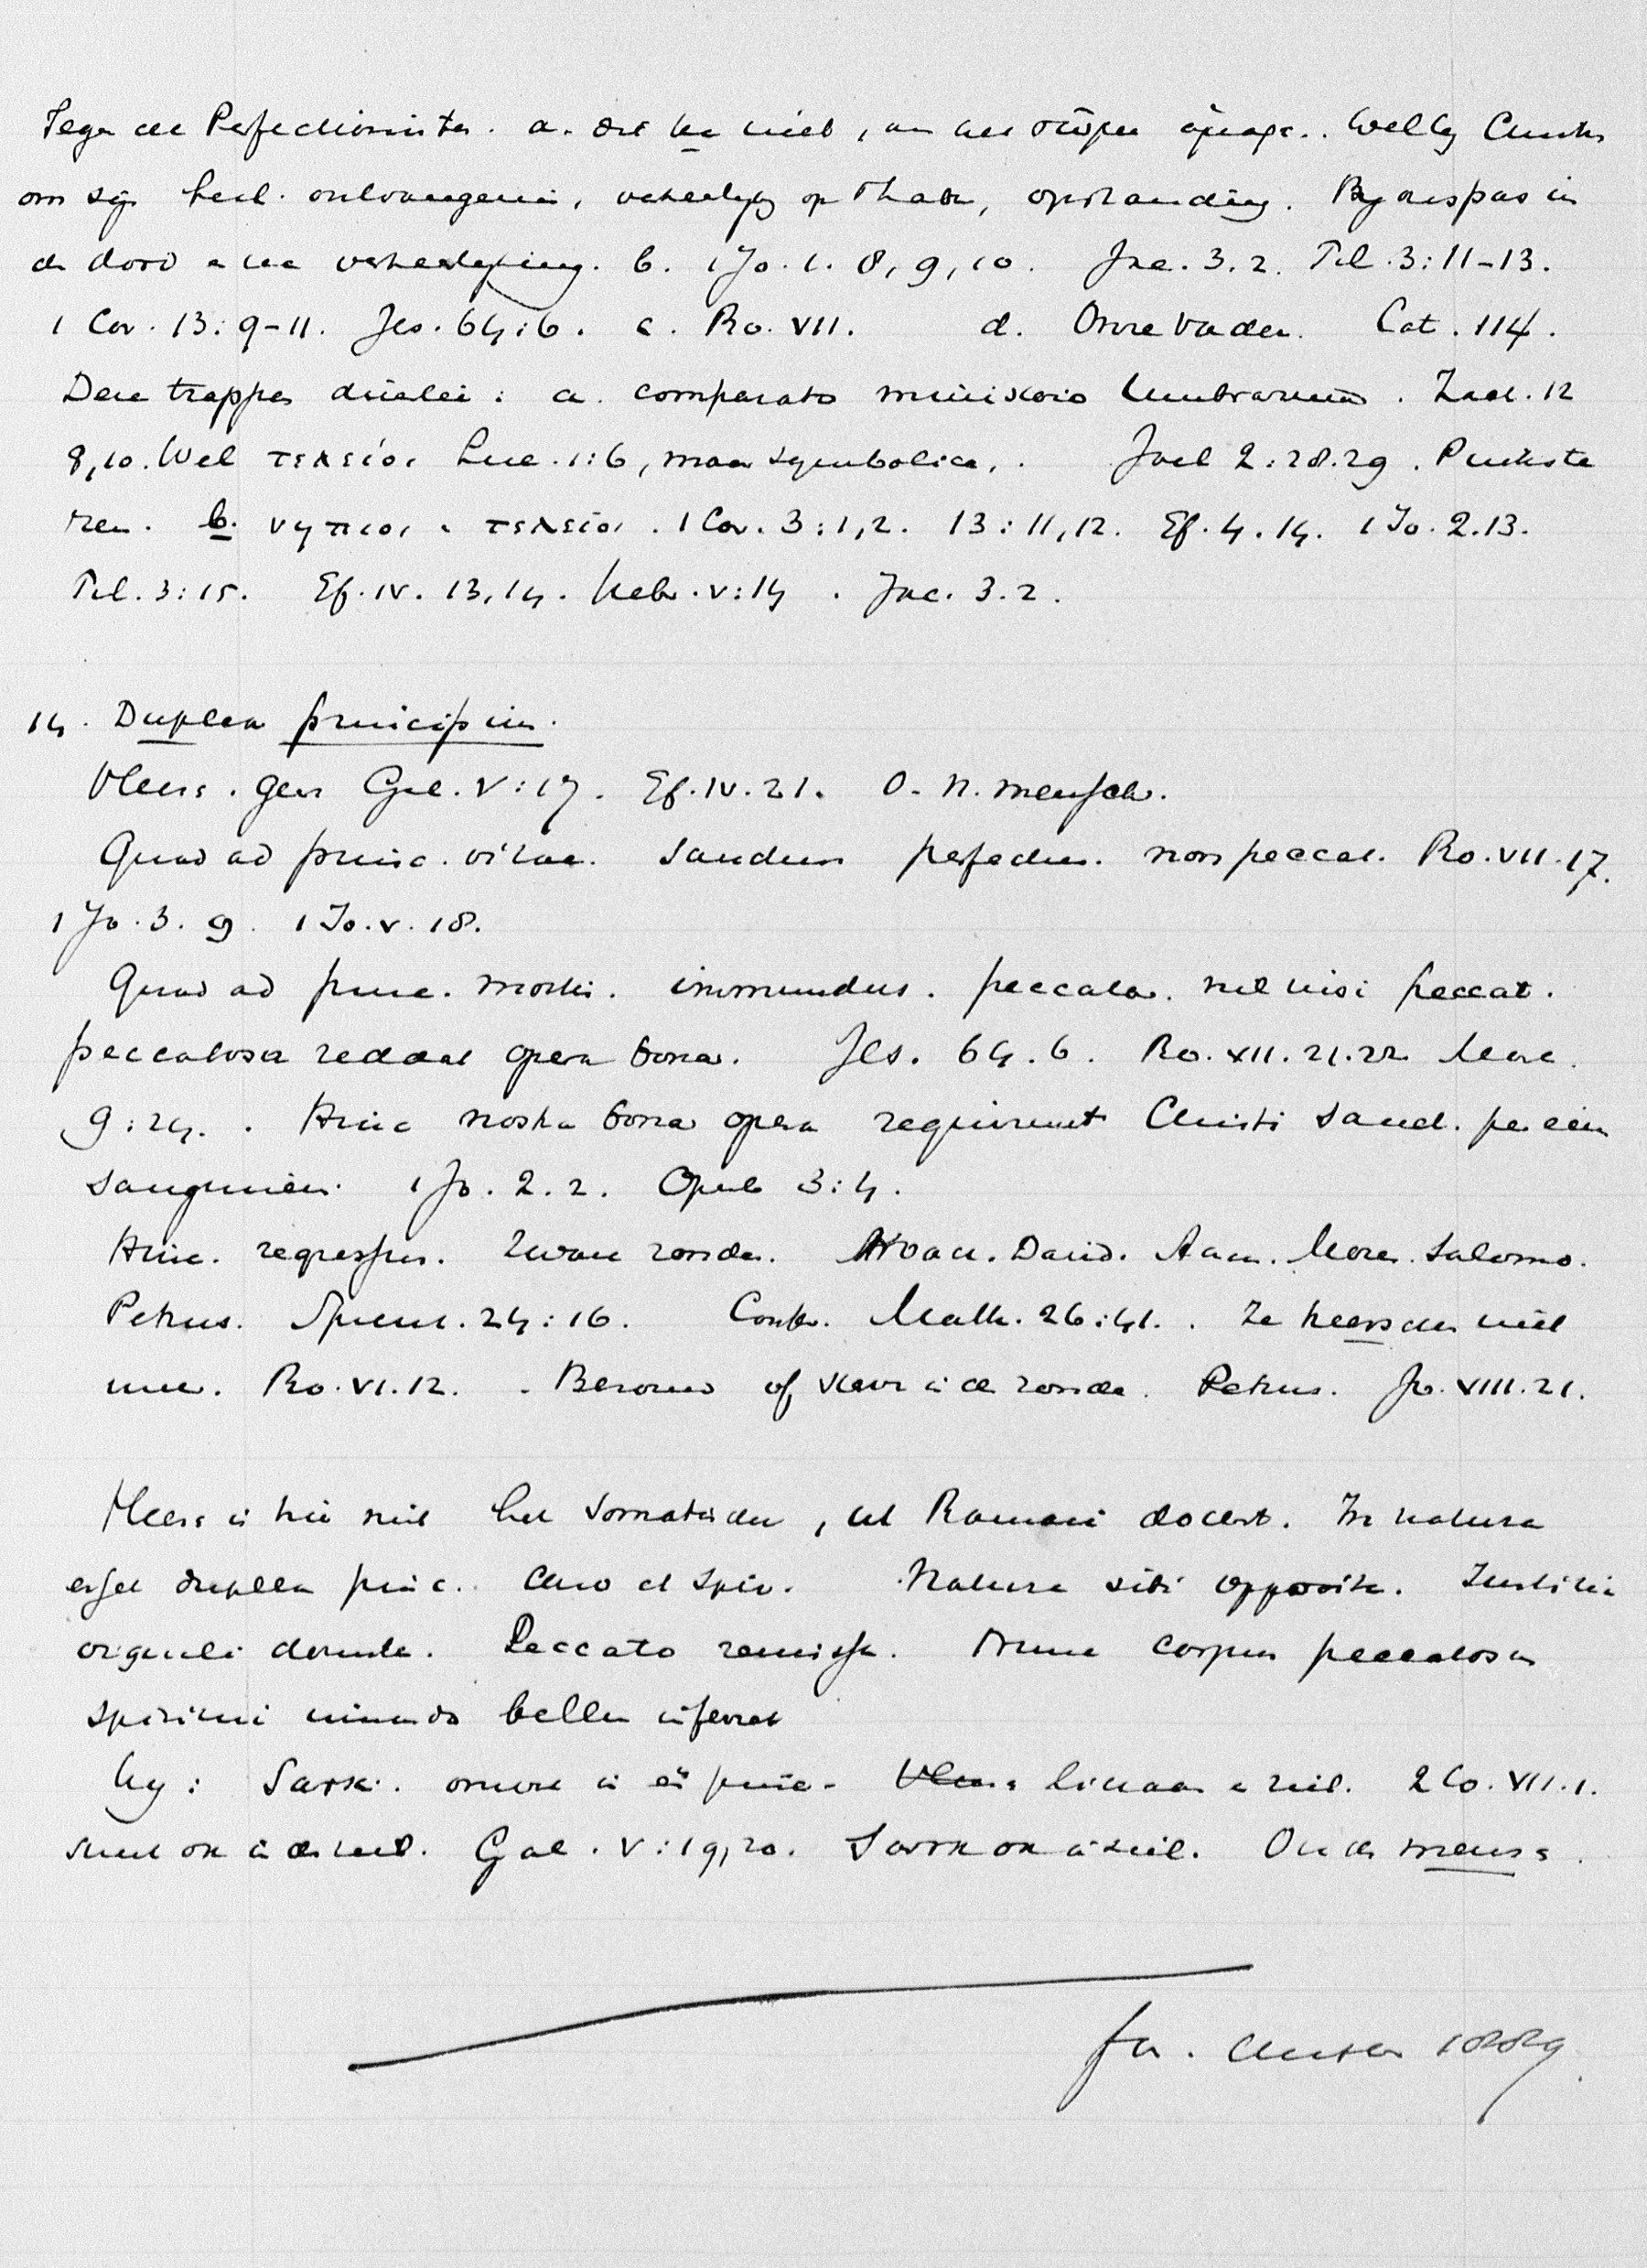 Tegen de Perfectionisten. a. dit kan niet, om het σῶμα ἁμαρτ.. Wel bij Christus
om zijn heil. ontvangenis, verheerlijkg op Thabor, opstanding. Bij ons pas in
de dood en de verheerlijking. b. 1 Jo. 1. 8, 9, 10. Jac. 3. 2. Fil. 3:11-13.
1 Cor. 13:9-11. Jes. 64:6. c. Ro. VII. d. Onze Vader. Cat. 114.
Deze trappen drieërlei: a. comparato ministerio umbrarum. Zach. 12
8,10. Wel τελείοι Luc. 1:6, maar symbolice. Joel 2:28.29. Pinkste
ren. b. νηπιοι - τελείοι. 1 Cor. 3:1,2. 13:11,12. Ef. 4. 14. 1 Jo. 2.13.
Fil. 3:15. Ef. IV. 13,14. Hebr. V:14. Jac. 3. 2.
14. Duplex principium.
Vleesch. geest Gal. V:17. Ef. IV. 21. O. N. mensch.
Quod ad princ. vitae. sanctus perfectus. non peccat. Ro. VII. 17.
1 Jo. 3. 9. 1 Jo. V. 18.
Quod ad princ. mortis. immundus. peccator. nil nisi peccat.
peccatosa reddat opera bona. Jes. 64. 6. Ro. VII. 21.22 Marc.
9:24. Hinc nostra bona opera requirunt Christi sanct. per eius
sanguinem. 1 Jo. 2. 2. Openb 3:4.
Hinc. regressus. Zware zonden. Noach. David. Aaron. Mozes. Salomo.
Petrus. Spreuk. 24:16. Confer. Matth. 26:41. Ze heerschen niet
meer. Ro. VI. 12. Berouw of sterv in de zonde. Petrus. Jo. VIII. 21.
Vleesch is hier niet het somatische, ut Romani docent. In natura
esset duplex princ. caro et spir. Natura sibi opposita. Iustitia
originali dempta. Peccato remisso. Nunc corpus peccatosum
spiritui mundo bellum inferret
Wij: Sarx. onrein in eig princ. lichaam en ziel. 2 Co. VII. 1.
ook in de ziel. Gal. V:19,20. Sarx ook in ziel. Oude mensch.
fin. 1889.